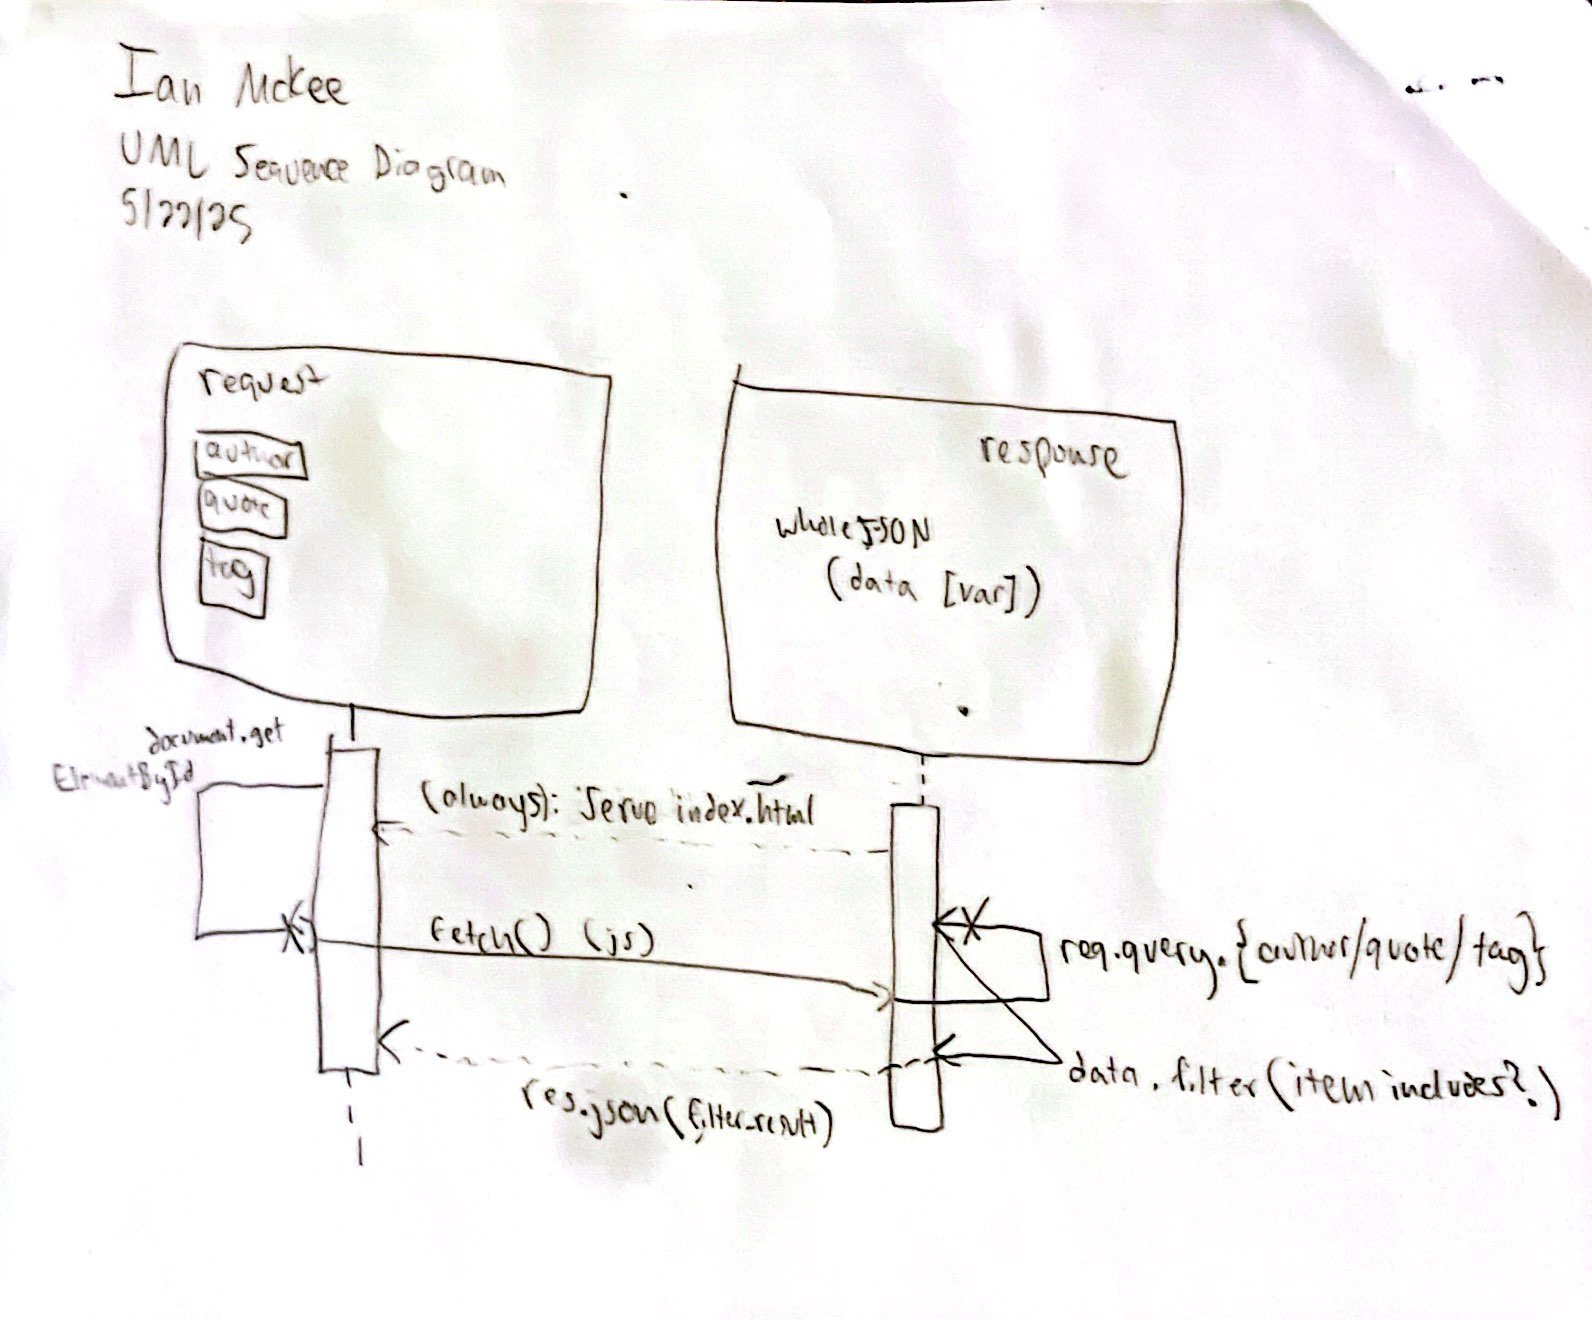 Ian McKee
UML Sequence Diagram
5/22/25
request
author
quote
tag
response
whole JSON
(data [var])
document.get
ElementById
(always): Serve index.html
fetch() (js)
req.query.{author/quote/tag}
data.filter(item includes?)
res.json(filter_result)